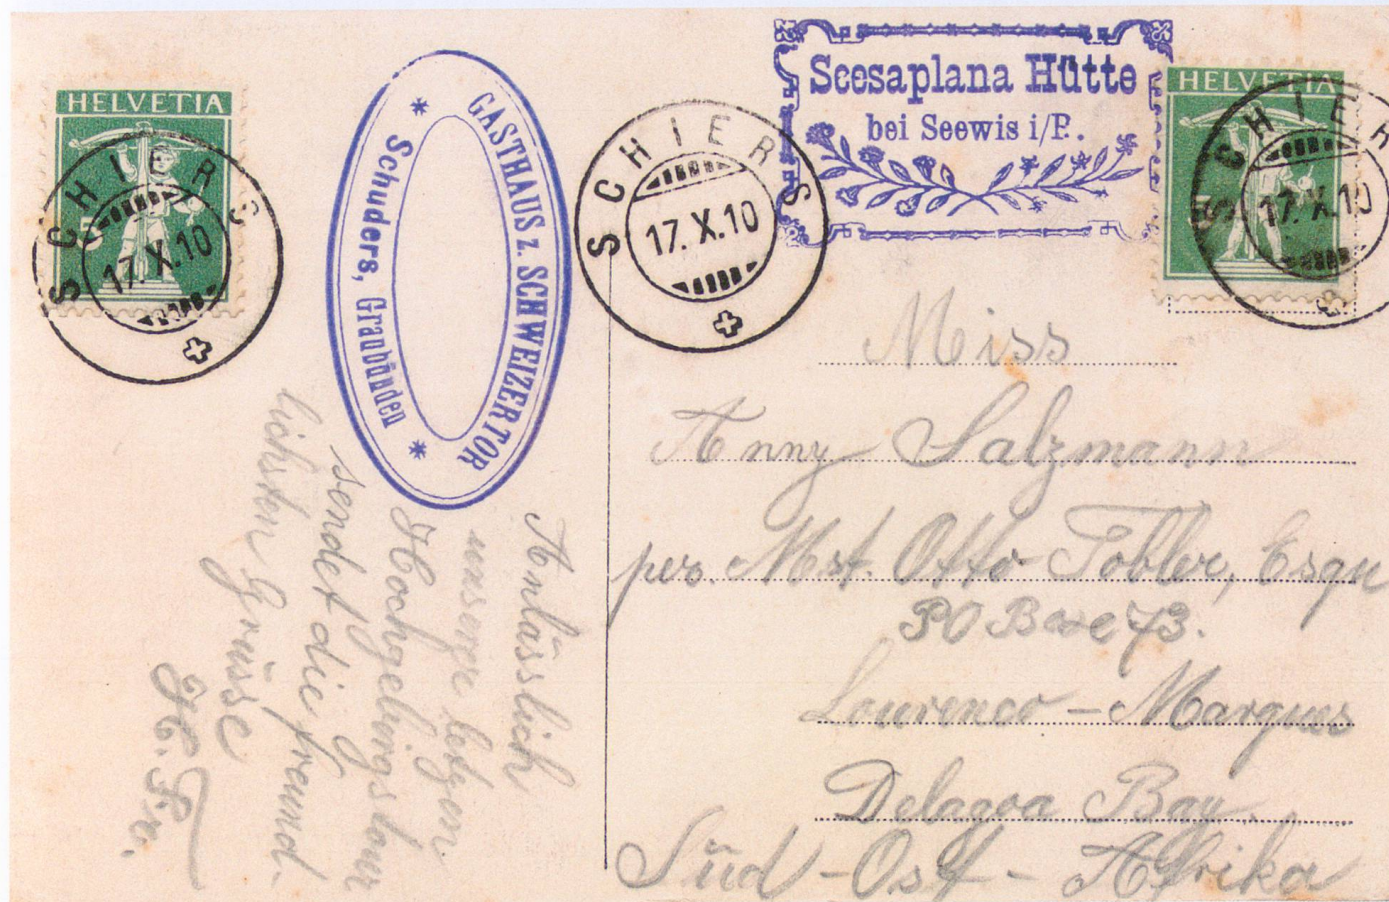 HELVETIA
5
SCHIERS
17.X.10
GASTHAUS z. SCHWEIZERTOR
* Schuders, Graubünden *
SCHIERS
17.X.10
Scesaplana Hütte
bei Seewis i/P.
HELVETIA
SCHIERS
17.X.10
Anlässlich
unserer letzten
Hochgebirgstour
sendet die freund-
lichsten Grüsse
Miss
Anny Salzmann
per. Mst. Otto Tobler, Esqu
PO Box 73.
Lourenco - Marques
Delagoa Bay.
Süd - Ost - Afrika